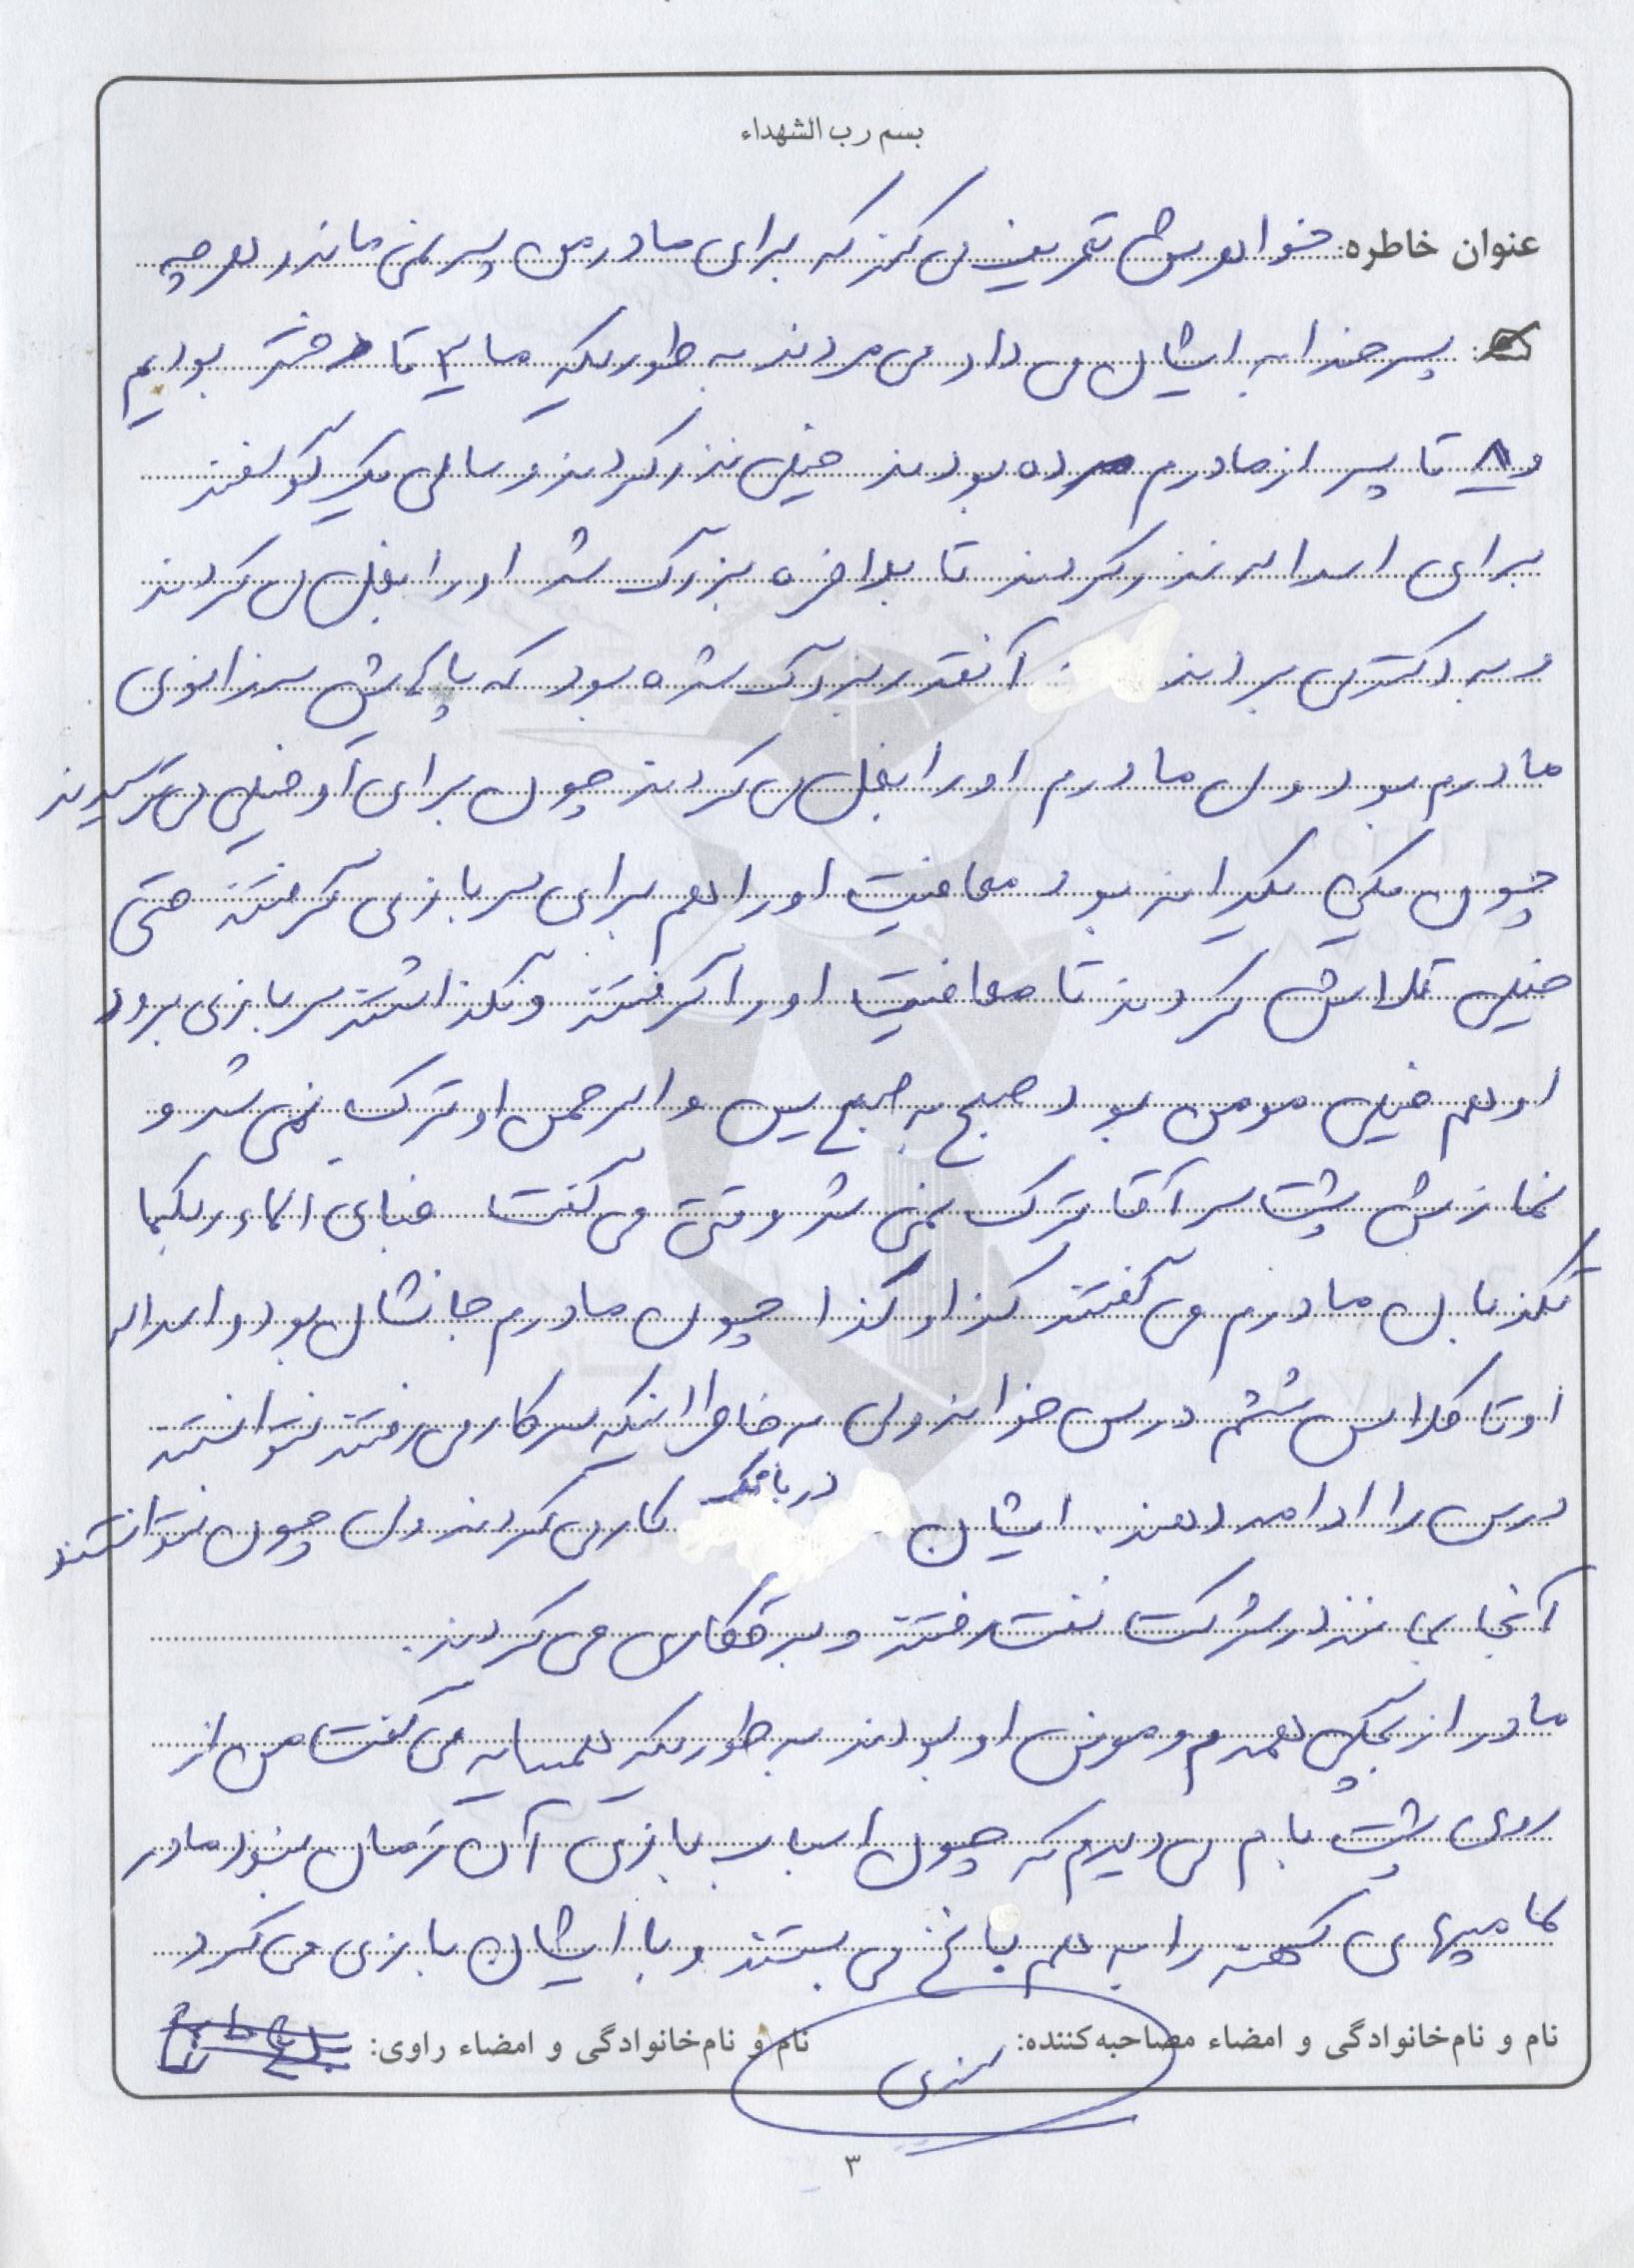 بسم رب الشهداء
عنوان خاطره: خواهرش تعریف می کند که برای مادر من پسر نمی ماند و هر چه
پسر خدا به ایشان می داد می مردند به طوریکه ما ۳ تا دختر بودیم
و ۸ تا پسر از مادرم مرده بودند خیلی نذر کردند و سالی یک گوسفند
برای اسداله نذر کردند تا بلاخره بزرگ شد او را بغل می کردند
و به دکتر می بردند آنقدر بزرگ شده بود که پاهایش سر زانوی
مادرم بود ولی مادرم او را بغل می کردند چون برای او خیلی می ترسیدند
چون یکی یکدانه بود معافیت او را هم برای سربازی گرفتند حتی
خیلی تلاش کردند تا معافیت او را گرفتند و نگذاشتند سربازی برود
او هم خیلی مومن بود صبح به صبح یس و الرحمن او ترک نمی شد و
نمازش پشت سر آقا ترک نمی شد وقتی می گفت فبای الاء ربکما
تکذبان مادرم می گفتند کذا و کذا چون مادرم جانشان بود و اسداله
او تا کلاس ششم درس خواند ولی به خاطر اینکه سر کار می رفتند نتوانستند
درس را ادامه دهند. ایشان در بانک کار می کردند ولی چون نتوانستند
آنجا بمانند در شرکت نفت رفتند و برقکاری می کردند.
مادر از بچگی همدم و مونس او بودند به طوریکه همسایه می گفت من از
روی پشت بام می دیدم که چون اسباب بازی آن زمان نبود مادر
لامپهای کهنه را به هم با نخ می بستند و با ایشان بازی می کرد
نام و نام‌خانوادگی و امضاء مصاحبه‌کننده:
نام و نام‌خانوادگی و امضاء راوی:
۳